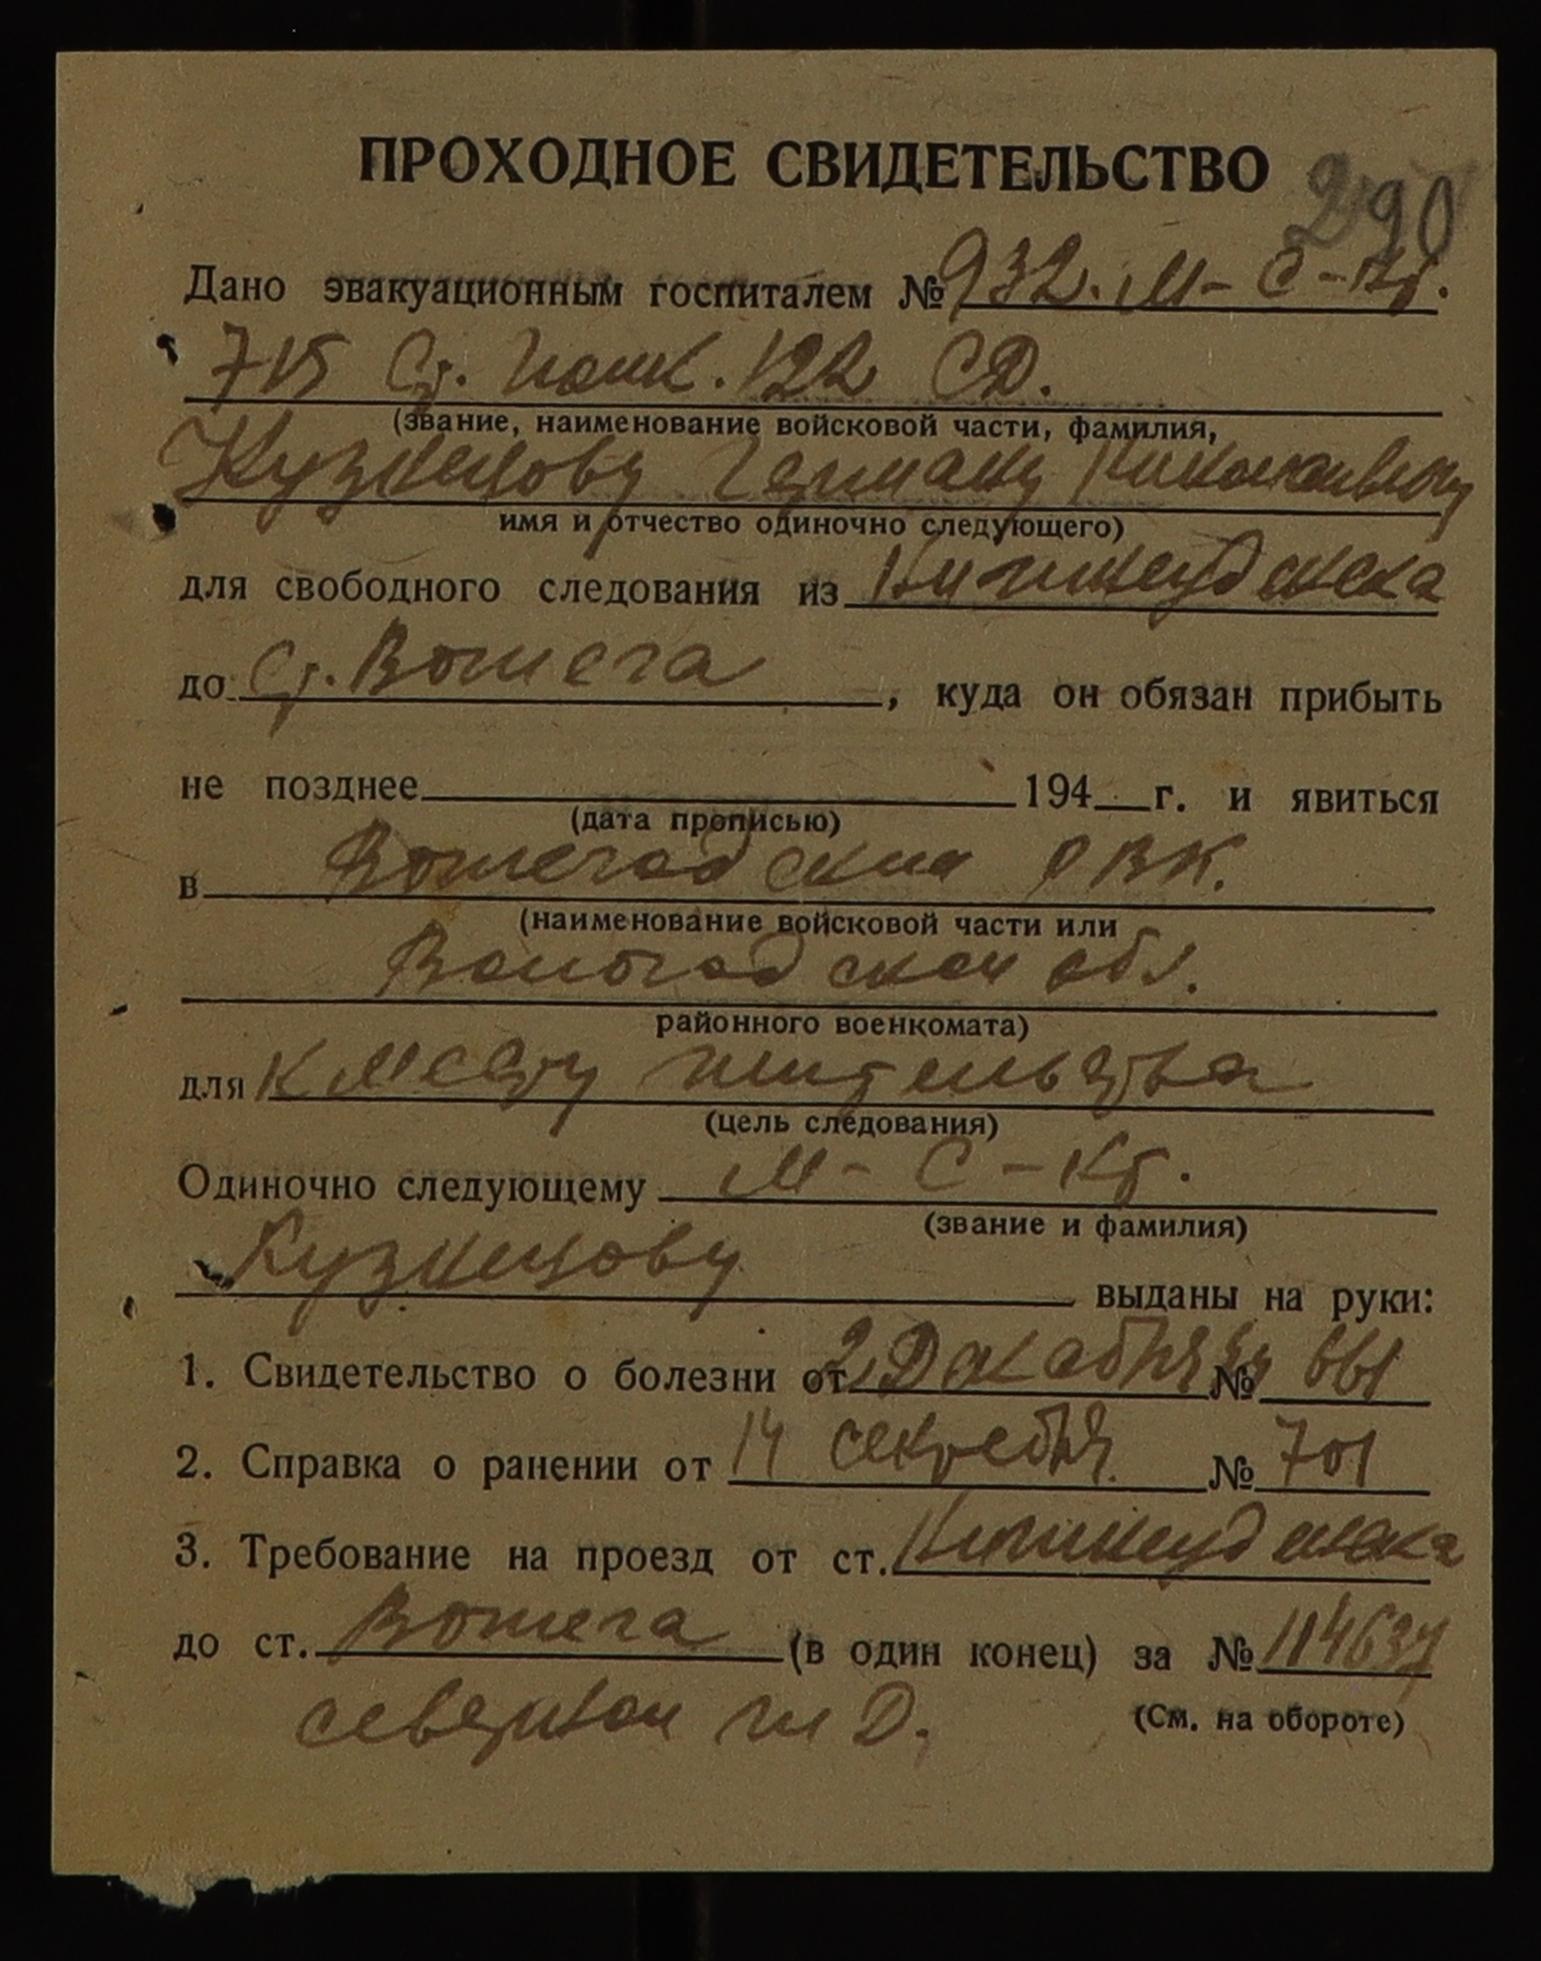 ПРОХОДНОЕ СВИДЕТЕЛЬСТВО
290
Дано эвакуационным госпиталем № 932. М-С-Кт.
715 Ст. Полк. 122 СД.
(звание, наименование войсковой части, фамилия,
Кузнецову Герману Николаевичу
имя и отчество одиночно следующего)
для свободного следования из Нижнеудинска
до Ст. Вожега, куда он обязан прибыть
не позднее 194 г. и явиться
(дата прописью)
в Вожегодский РВК.
(наименование войсковой части или
Вологодской обл.
районного военкомата)
для к месту жительства
(цель следования)
Одиночно следующему М-С-Кт.
(звание и фамилия)
Кузнецову выданы на руки:
1. Свидетельство о болезни от 2 Декабря 44 № 661
2. Справка о ранении от 14 сентября № 701
3. Требование на проезд от ст. Нижнеудинска
до ст. Вожега (в один конец) за № 114637
северной ж Д.
(См. на обороте)